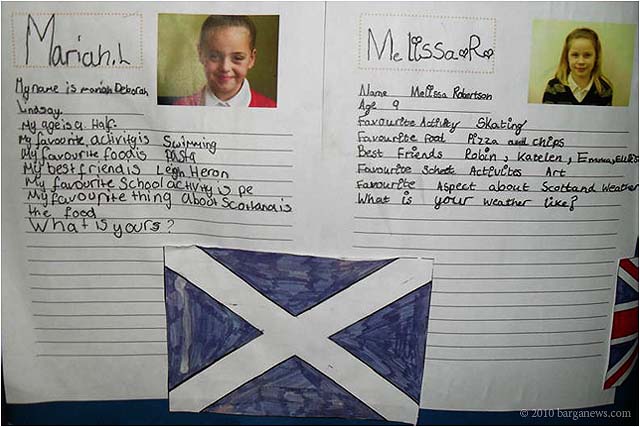 Mariah.L
My name is mariah Deborah
Lindsay.
My age is a Half.
My favourite activity is Swimming
My favourite food is PASTA
My best friend is Leigh Heron
My favourite School activity is pe
My favourite thing about Scotland is
the food
What is yours?
Melissa R
Name Melissa Robertson
Age 9
Favourite Activity Skating
Favourite food Pizza and chips
Best Friends Robin, Katelen, Emma,
Favourite Activities Art
Favourite Aspect about Scotland Weather
What is your weather like?
© 2010 barganews.com